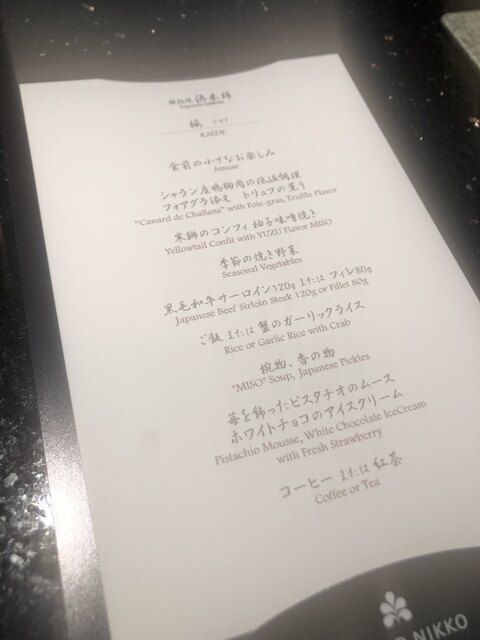 鉄板焼 浜木綿
KAEDE
食前の小さなお楽しみ
Amuse
シャラン産鴨胸肉の低温調理
フォアグラ添え トリュフの薫り
"Canard de Challans" with Foie-gras, Truffle Flavor
寒鰤のコンフィ 柚子味噌焼き
Yellowtail Confit with YUZU Flavor MISO
季節の焼き野菜
Seasonal Vegetables
黒毛和牛サーロイン120g または フィレ80g
Japanese Beef Sirloin Steak 120g or Fillet 80g
ご飯 または 蟹のガーリックライス
Rice or Garlic Rice with Crab
椀物、香の物
"MISO" Soup, Japanese Pickles
苺を飾ったピスタチオのムース
ホワイトチョコのアイスクリーム
Pistachio Mousse, White Chocolate IceCream
with Fresh Strawberry
コーヒー または 紅茶
Coffee or Tea
NIKKO